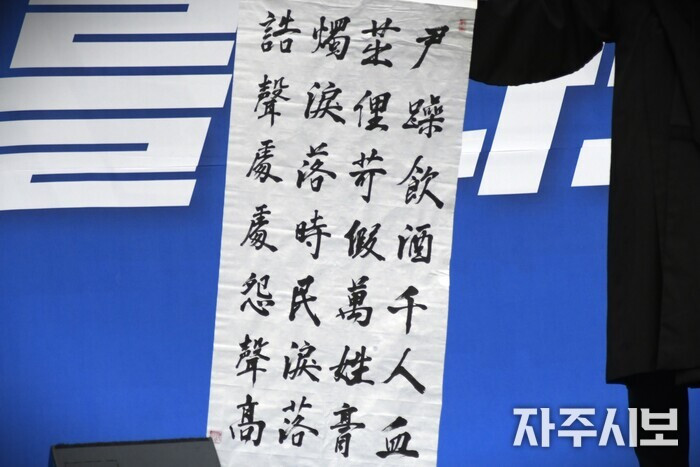 尹躁飲酒千人血
茁俚苛假萬姓膏
燭淚落時民淚落
誥聲處處怨聲高
자주시보